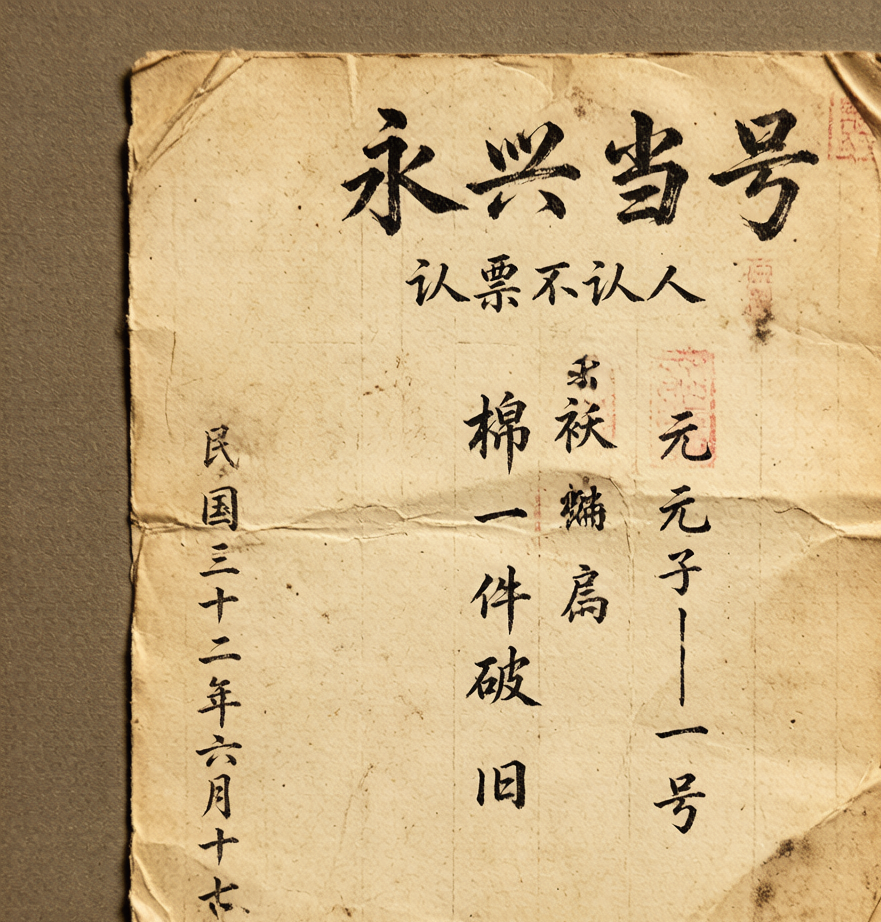 永兴当号
认票不认人
元元子一一号
袄
棉一件破旧
民国三十二年六月十